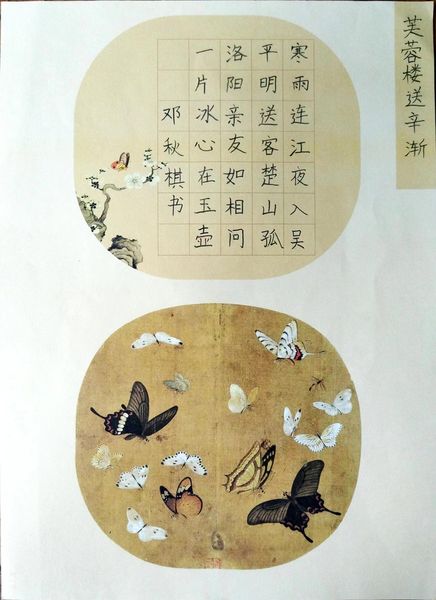 芙蓉楼送辛渐
寒雨连江夜入吴
平明送客楚山孤
洛阳亲友如相问
一片冰心在玉壶
邓秋棋书